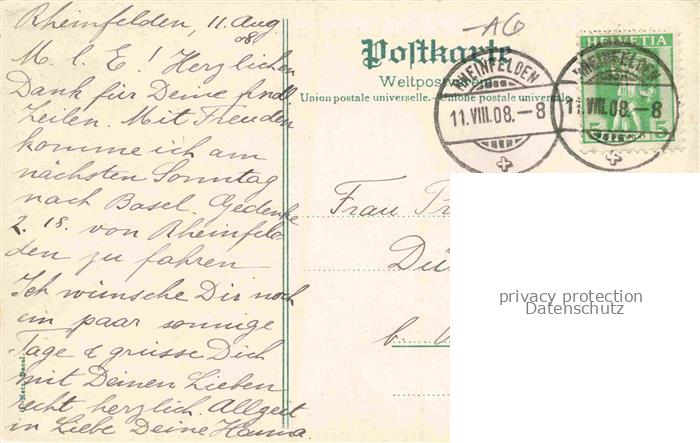 Rheinfelden, 11. Aug
08.
M. l. E! Herzlichen
Dank für Deine frdl.
Zeilen. Mit Freuden
komme ich am
nächsten Sonntag
nach Basel. Gedenke
2.18. von Rheinfel-
den zu fahren
Ich wünsche Dir noch
ein paar sonnige
Tage & grüsse Dich
mit Deinen Lieben
recht herzlich. Allzeit
in Liebe Deine Hanna.
-AG
Postkarte
Weltpostverein
Union postale universelle.-Unione postale universale
RHEINFELDEN
11.VIII.08.-8
HELVETIA
5 5
RHEINFELDEN
11.VIII.08.-8
Frau
Dü
b.
privacy protection
Datenschutz
Basel.